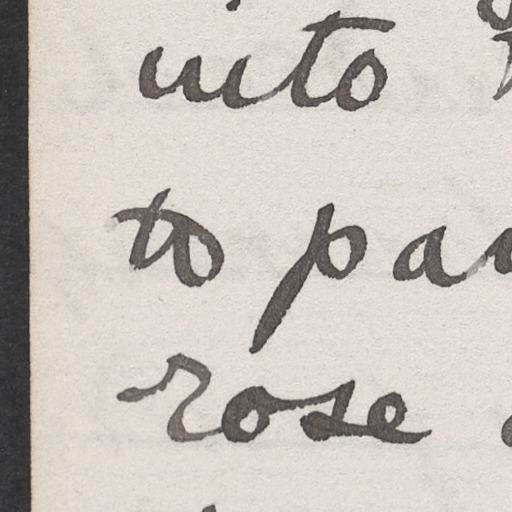 into
to
rose